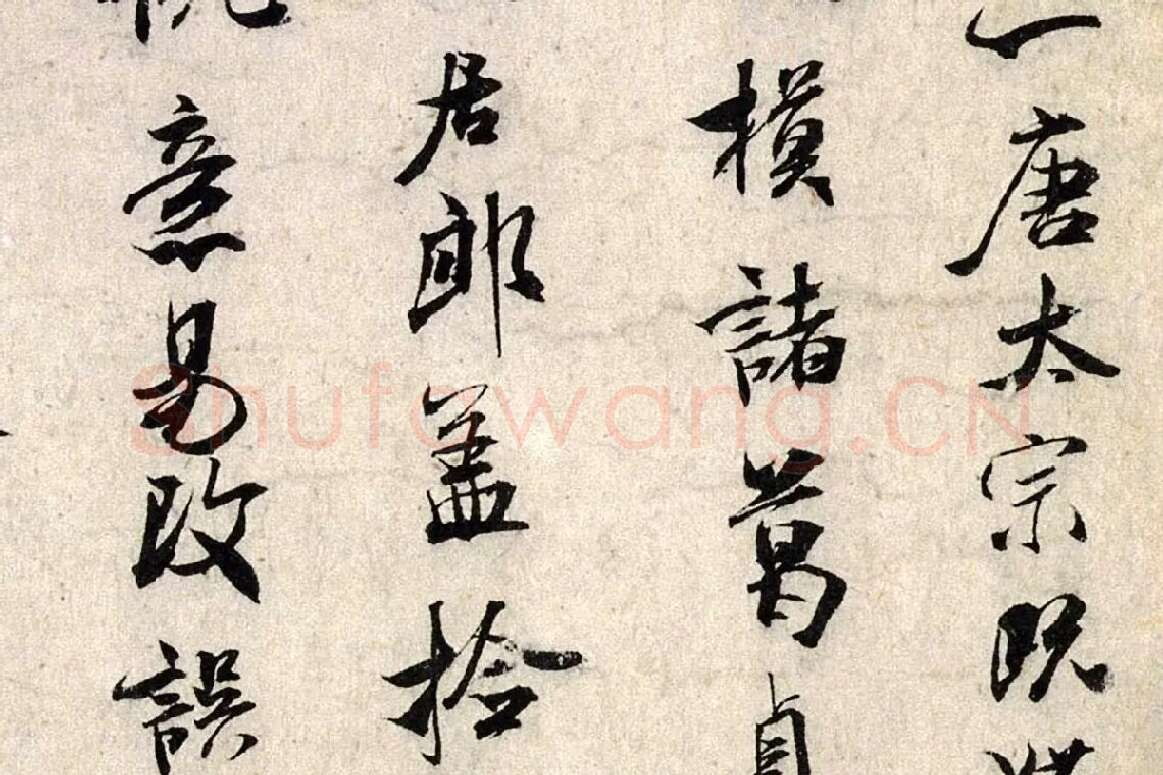 唐太宗既
模諸葛貞
居郎盖拾
意易改誤
Shufawang.CN